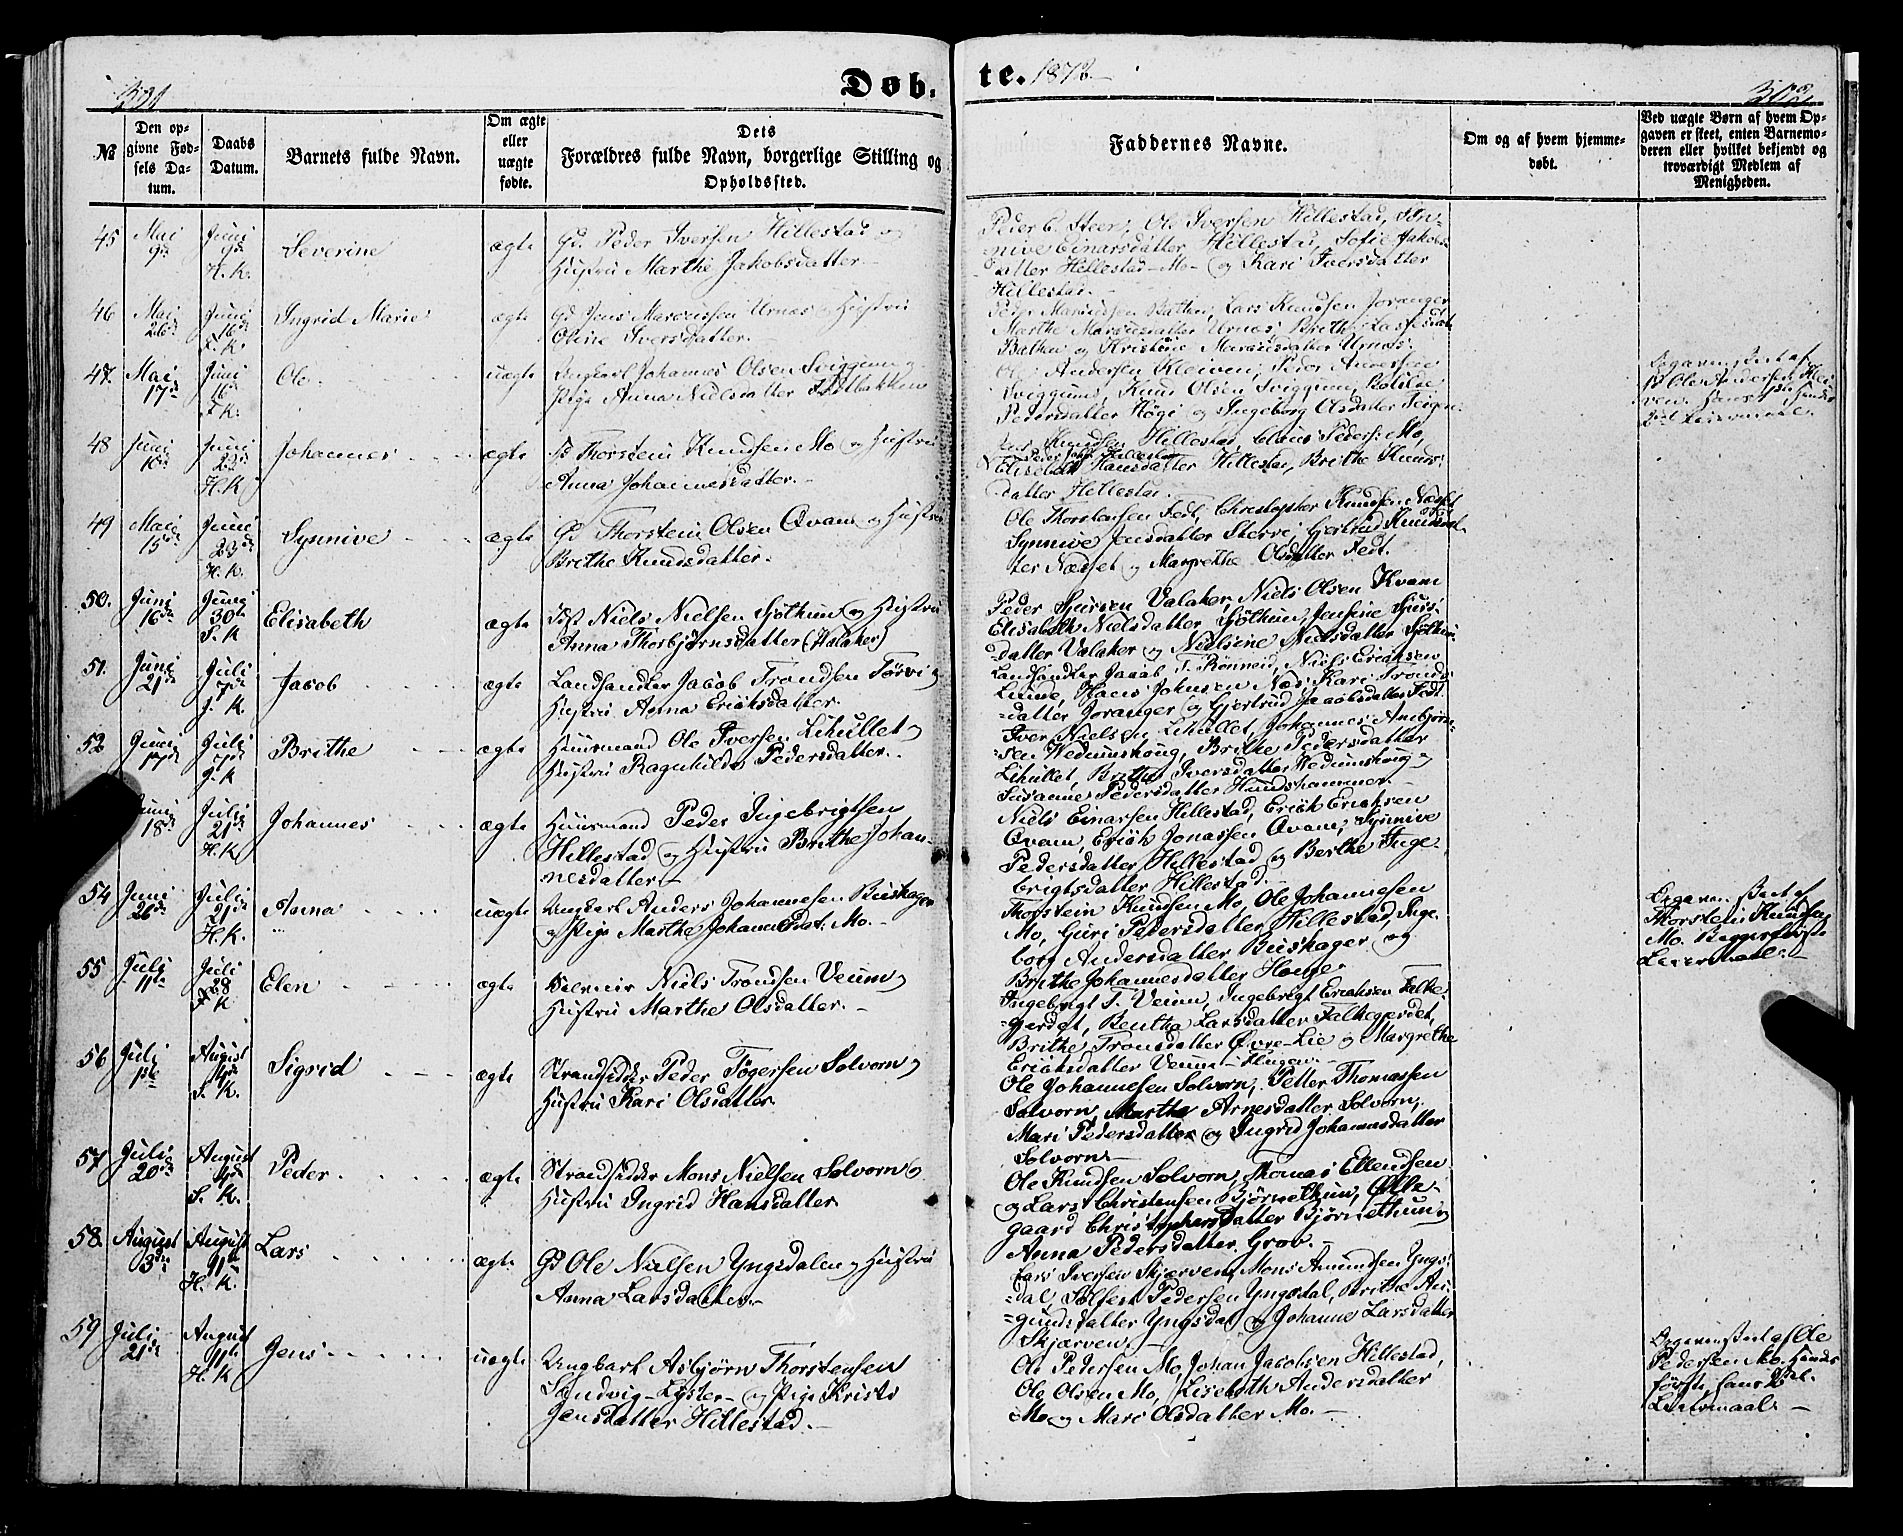 301
Døb-
te. 1872.
302
№
Den opgivne Fødsels Datum.
Daabs Datum.
Barnets fulde Navn.
Om ægte eller uægte fødte.
Dets Forældres fulde Navn, borgerlige Stilling og Opholdssted.
Faddernes Navne.
Om og af hvem hjemmedøbt.
Ved uægte Børn af hvem Opgaven er skeet, enten Barnemoderen eller hvilket bekjendt og troværdigt Medlem af Menigheden.
45 Mai 9de Juni 9de H. K. Severine ægte
Gd. Peder Iversen Hillestad og
Hustru Marthe Jakobsdatter
Peder C. Steen, Ole Iversen Hillestad, Syn-
nive Einarsdatter Hillestad, Sofie Jakobs-
datter Hillestad - Mo - og Kari Iversdatter
Hillestad.
46 Mai 26de Juni 16de F. K. Ingrid Marie ægte
Gd Jens Marcussen Urnæs og Hustru
Oline Iversdatter.
Peder Marcussen Bathen, Lars Knudsen Joranger
Marthe Marcusdatter Urnæs, Brithe Lassesdat.
Bathen og Kristine Marcusdatter Urnæs.
47. Mai 17de Juni 16de F. K. Ole uægte
Ungkarl Johannes Olsen Sviggum og
Pige Anna Nielsdatter
Ole Andersen Kleiven, Peder Andersen
Sviggum, Knud Olsen Sviggum,
Pedersdatter Høgi og Ingeborg Olsdatter Teigen.
Opgaven skeet af
Ole Andersen Klei-
ven. Hans 1ste, hendes
2det Leiermaal.
48 Juni 10de Juni 23de H. K Johannes ægte
Gd Thorstein Knudsen Mo og Hustru
Anna Johannesdatter.
Knudsen Hillestad, Claus Peders. Mo,
Peder Joh. Hillestad
Elisabeth Hansdatter Hillestad, Brithe Knuds-
datter Hillestad.
49 Mai 15de Juni 23de H. K. Synnive ægte
Gd Thorstein Olsen Qvam og Hustru
Brithe Knudsdatter.
Ole Thorstensen Fedt, Christopher Knudsen Næset
Synnive Jensdatter Skerri, Gjertrud Knudsdat-
ter Næset og Margrethe Olsdatter Fedt.
50. Juni 16de Juni 30te S. K Elisabeth ægte
Niels Nielsen Sjøthun og Hustru
Anna Thorbjørnsdatter (Valaker)
Peder Sjursen Valaker, Niels Olsen Kvam
Elisabeth Nielsdatter Sjøthun, Jensine Sjurs-
datter Valaker og Nielsine Nielsdatter Sjøthun
51. Juni 21de Juli 7de J. K. Jacob ægte
Landhandler Jacob Trondsen Tørvi og
Hustru Anna Eriksdatter.
Landhandler Jacob T. Rønneid, Niels Eriksen
Hans Johnsen Næs, Kari Tronds-
datter Joranger og Gjertrud Jacobsdatter Fedt.
52 Juni 17de Juli 7de J. K Brithe ægte
Huusmand Ole Iversen Lihullet og
Hustru Ragnhilde Pedersdatter.
Iver Nielsen Lihullet, Johannes Anbjørn-
sen Wedumshoug, Brithe Pedersdatter
Lihullet, Brithe Iversdatter Wedumshoug og
Susanne Pedersdatter Hundshammer.
Juni 18de Juli 21de H. K Johannes ægte
Huusmand Peder Ingebrigtsen
Hillestad og Hustru Brithe Johan-
nesdatter
Niels Einarsen Hillestad, Erik Eriksen
Qvam, Erik Jonassen Qvam, Synnive
Pedersdatter Hillestad og Berthe Inge-
brigtsdatter Hillestad.
54 Juni 26de Juli 21de H. K. Anna uægte
Ungkarl Anders Johannesen Buskager
og Pige Marthe Johannesdat. Mo.
Thorstein Knudsen Mo, Ole Johannesen
Mo, Guri Pedersdatter Hillestad, Inge-
borg Andersdatter Buskager og
Brithe Johannesdatter Houge.
Opgaven skeet af
Thorstein Knudsen
Mo. Begges første
Leiermaal.
55 Juli 11te Juli 28 F K Elen ægte
Niels Trondsen Veum og
Hustru Marthe Olsdatter.
Ingebrigt T. Veum, Ingebrigt Eriksen Falke-
gjerdet, Bentha Larsdatter Falkegjerdet,
Brithe Tronsdatter Øvre-Lie og Margrethe
Eriksdatter Veum-Hugen.
56 Juli 1ste August 4de S. K. Sigrid ægte
Strandsidder Peder Tøgersen Solvorn og
Hustru Kari Olsdatter
Ole Johannesen Solvorn, Petter Thomassen
Solvorn, Marthe Arnesdatter Solvorn,
Mari Pedersdatter og Ingrid Johannesdatter
Solvorn.
57 Juli 20de August 4de S. K. Peder ægte
Strandsidder Mons Nielsen Solvorn og
Hustru Ingrid Hansdatter
Ole Knudsen Solvorn, Thomas Ellendsen
og Lars Christensen Bjørnethun,
gaard Christophersdatter Bjørnethun og
Anna Pedersdatter Grov.
58. August 3die August 11te H. K. Lars ægte
Gd Ole Nielsen Yngsdalen og Hustru
Anna Larsdatter.
Lars Iversen Skjærven, Mons Amundsen Yngs-
dal, Solfest Pedersen Yngsdal, Brithe Au-
gundsdatter Yngsdal og Johanne Larsdatter
Skjærven.
59 Juli 21de August 11te H. K Jens uægte
Ungkarl Asbjørn Thorstensen
Sandvig-Lyster- og Pige Kristi
Jensdatter Hillestad.
Ole Pedersen Mo, Johan Jacobsen Hillestad,
Ole Olsen Mo, Lisebeth Andersdatter
Mo og Mari Olsdatter Mo.
Opgaven skeet af Ole
Pedersen Mo. Hendes
første, hans 2det
Leiermaal.